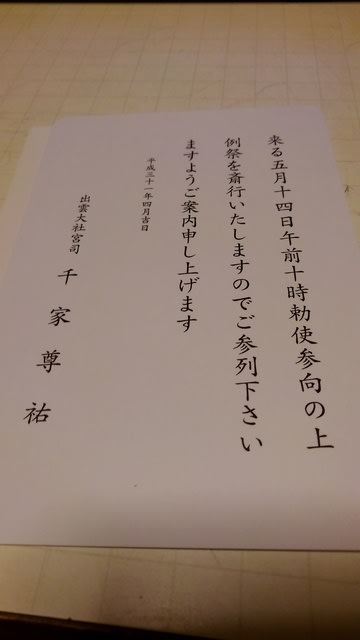 来る五月十四日午前十時勅使参向の上
例祭を斎行いたしますのでご参列下さい
ますようご案内申し上げます
平成三十一年四月吉日
出雲大社宮司 千家尊祐